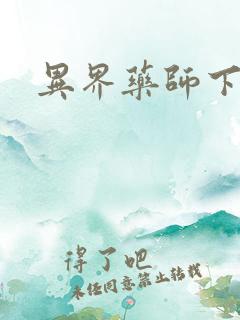 異界藥師下
得了吧
未经同意禁止转载